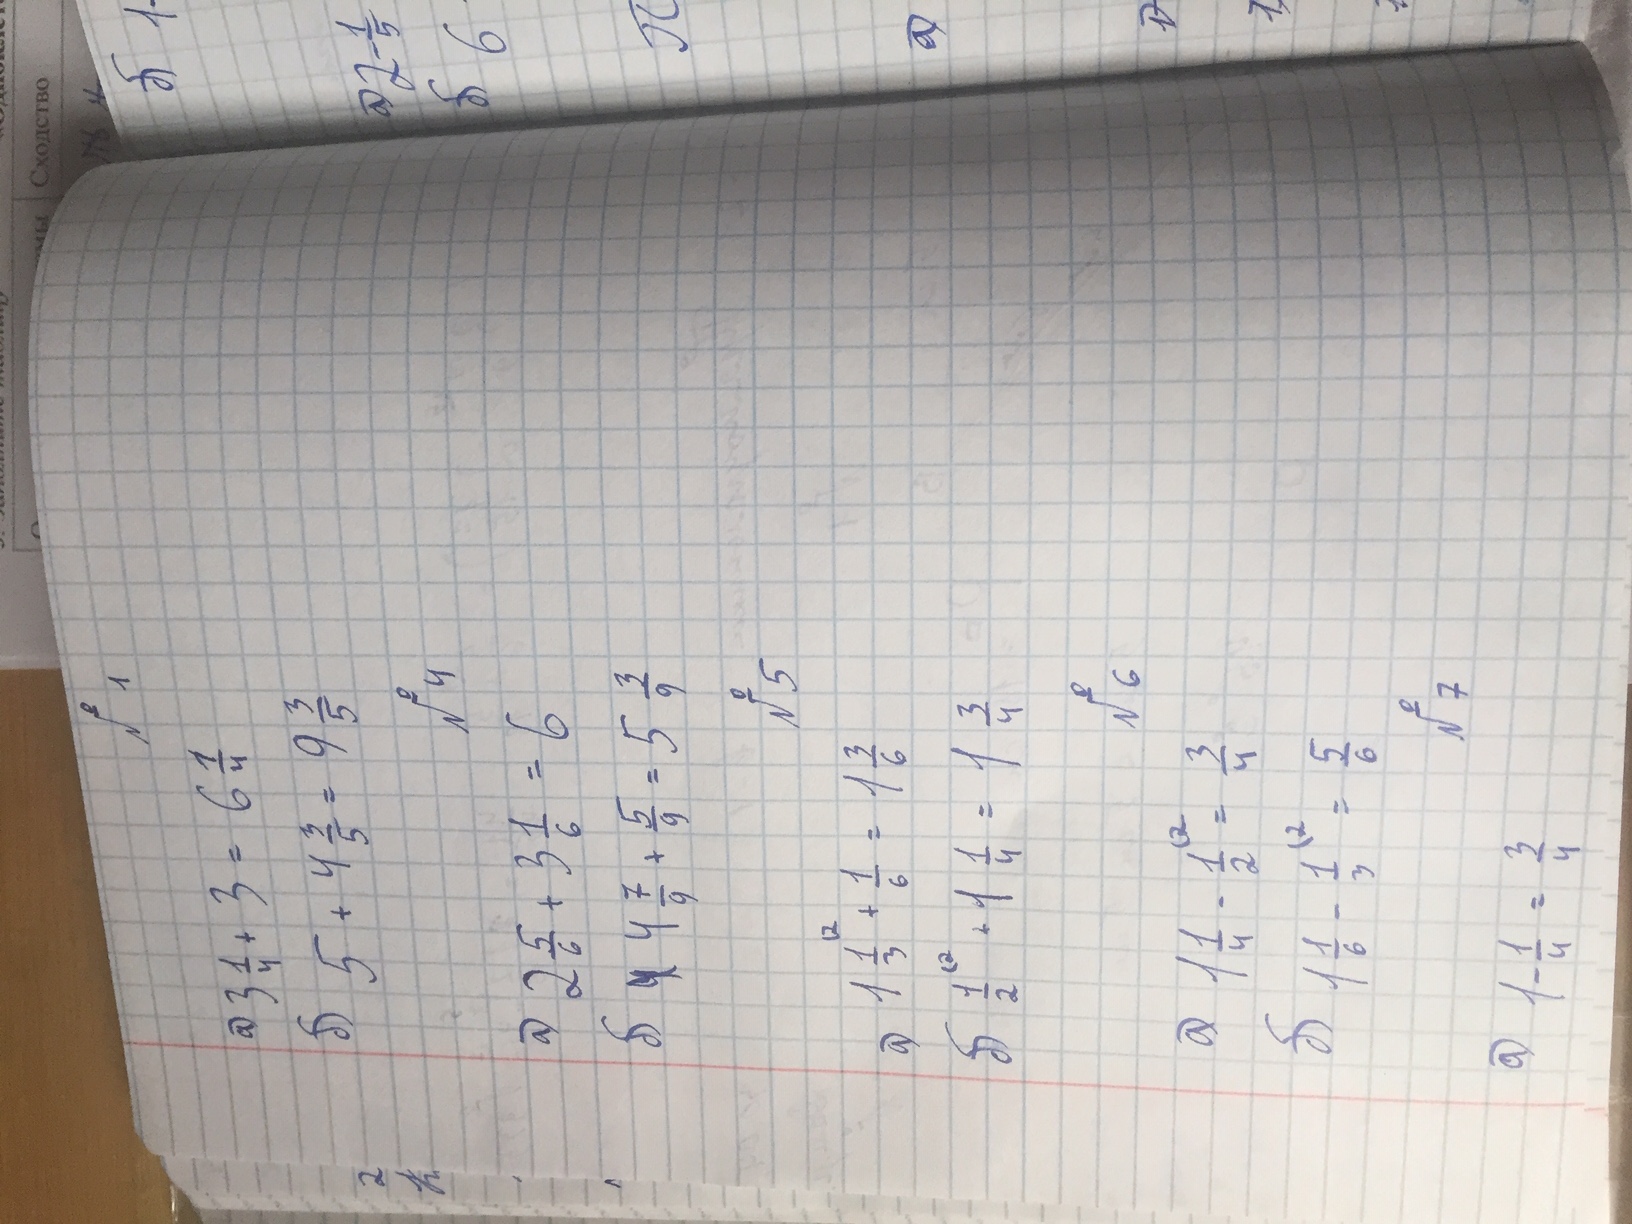 №1
а) 3 1/4 + 3 = 6 1/4
б) 5 + 4 3/5 = 9 3/5
№4
а) 2 5/6 + 3 1/6 = 6
б) 4 7/9 + 5/9 = 5 3/9
№5
а) 1 1/3 (2 + 1/6 = 1 3/6
б) 1/2 (2 + 1 1/4 = 1 3/4
№6
а) 1 1/4 - 1/2 (2 = 3/4
б) 1 1/6 - 1/3 (2 = 5/6
№7
а) 1 - 1/4 = 3/4
б) 1-
а) 2 - 1/5
б) 6
а)
Сходство